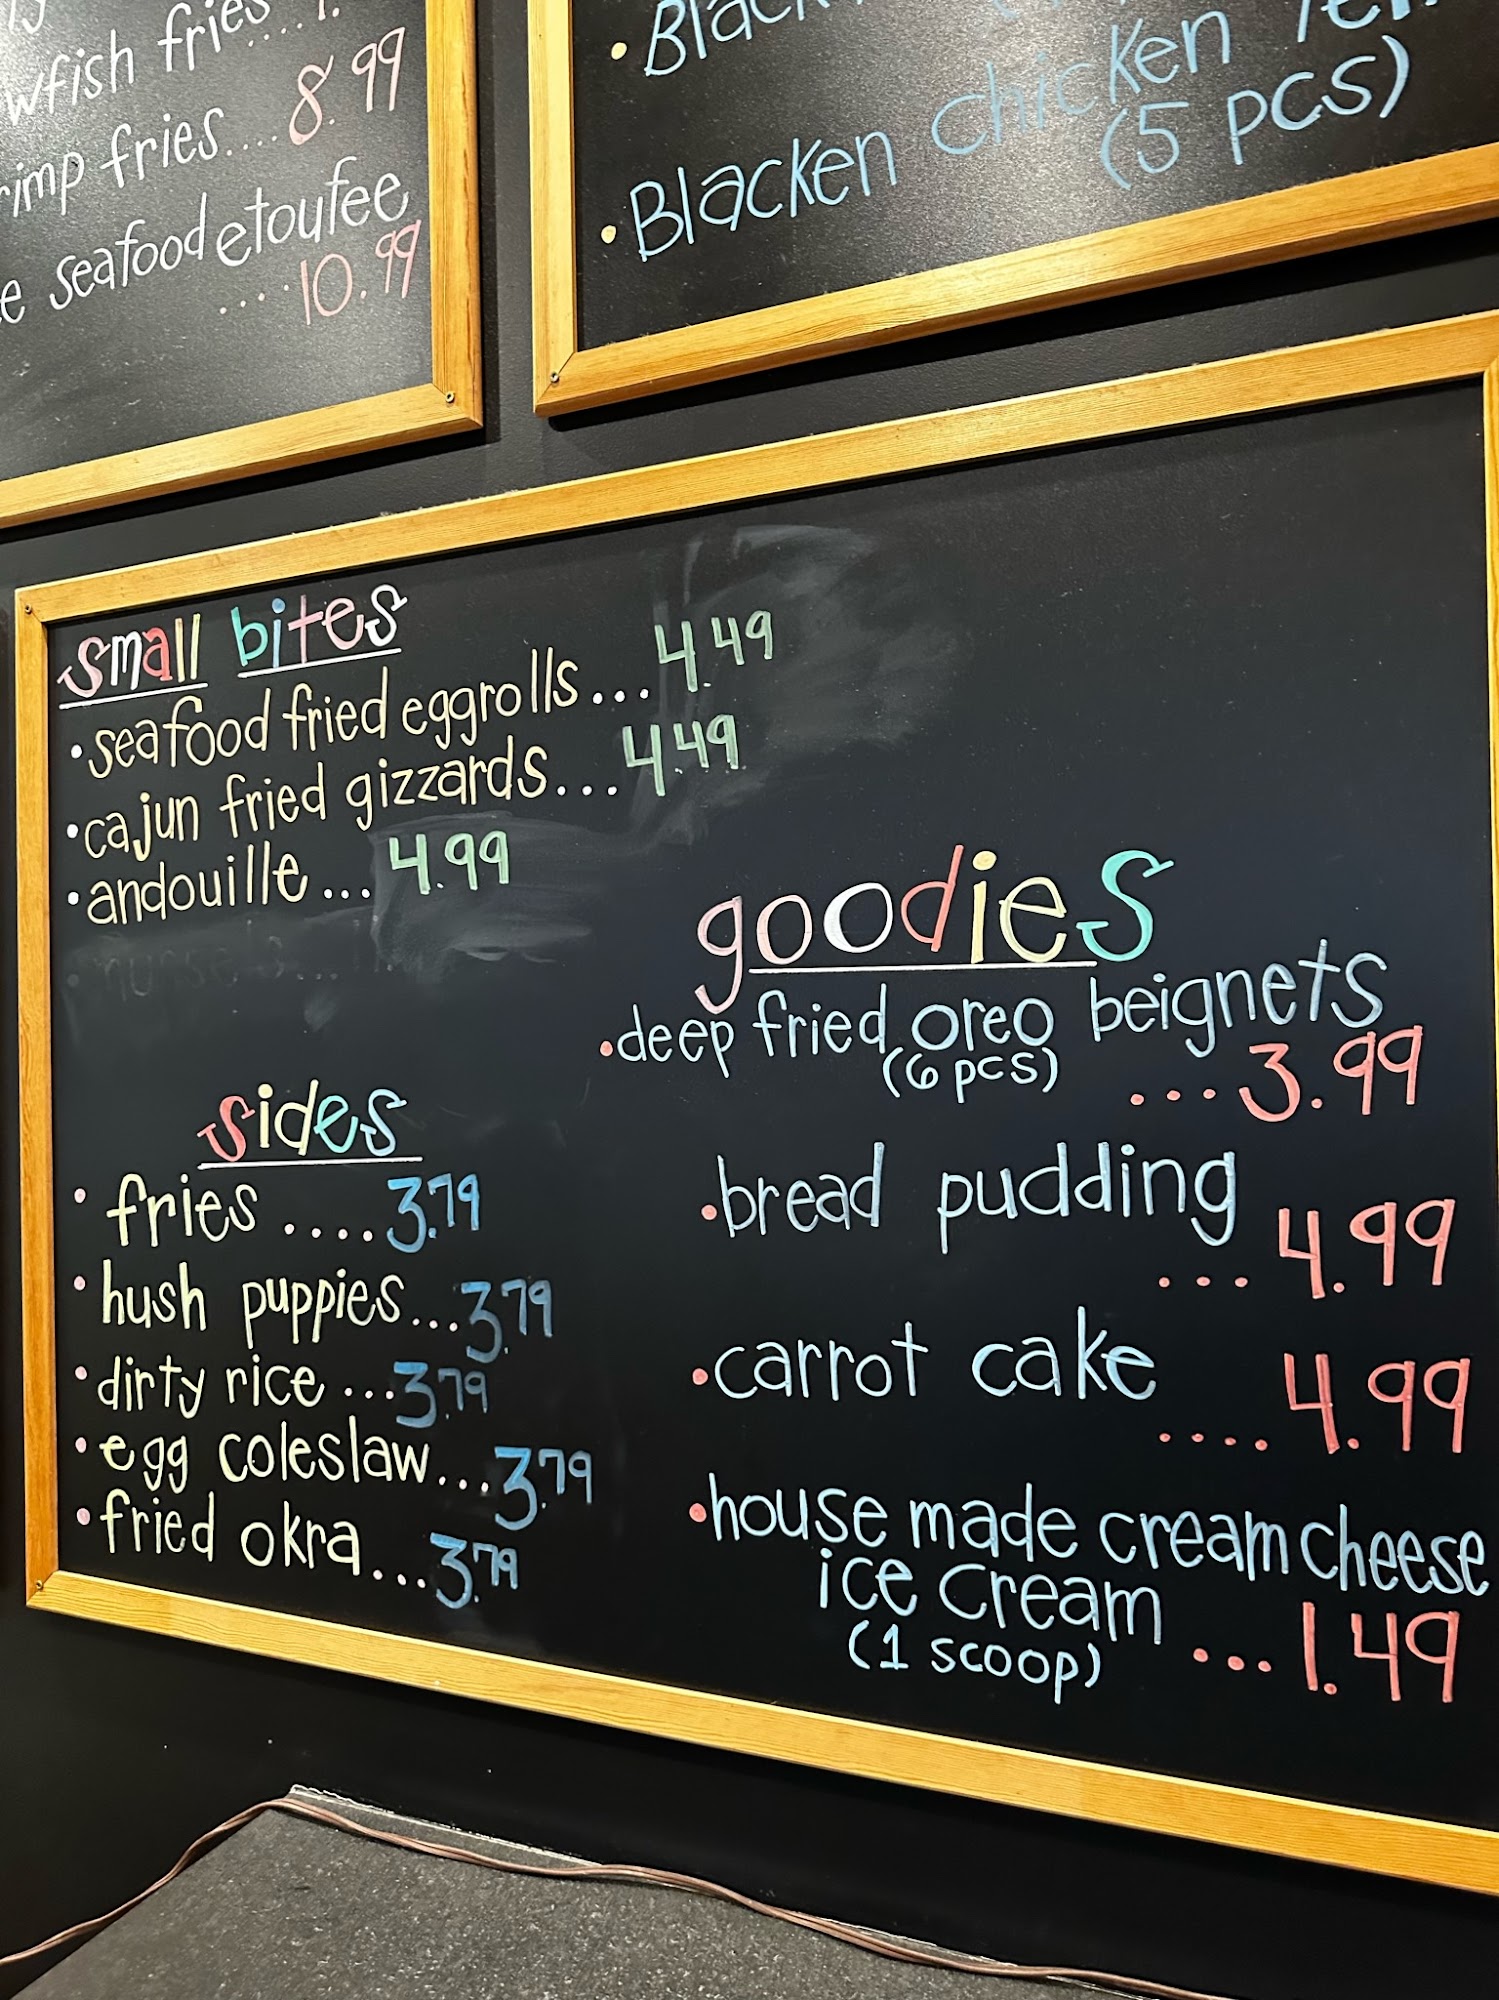 fries....
fries....8.99
seafood etoufee
....10.99
Blacken chicken
(5 pcs)
small bites
•seafood fried eggrolls...4.49
•cajun fried gizzards...4.49
•andouille...4.99
goodies
•deep fried oreo beignets
(6 pcs) ...3.99
•bread pudding
...4.99
•carrot cake
....4.99
•house made cream cheese
ice cream
(1 scoop) ...1.49
sides
• fries ....3.79
• hush puppies...3.79
• dirty rice ...3.79
• egg coleslaw...3.79
• fried okra...3.79